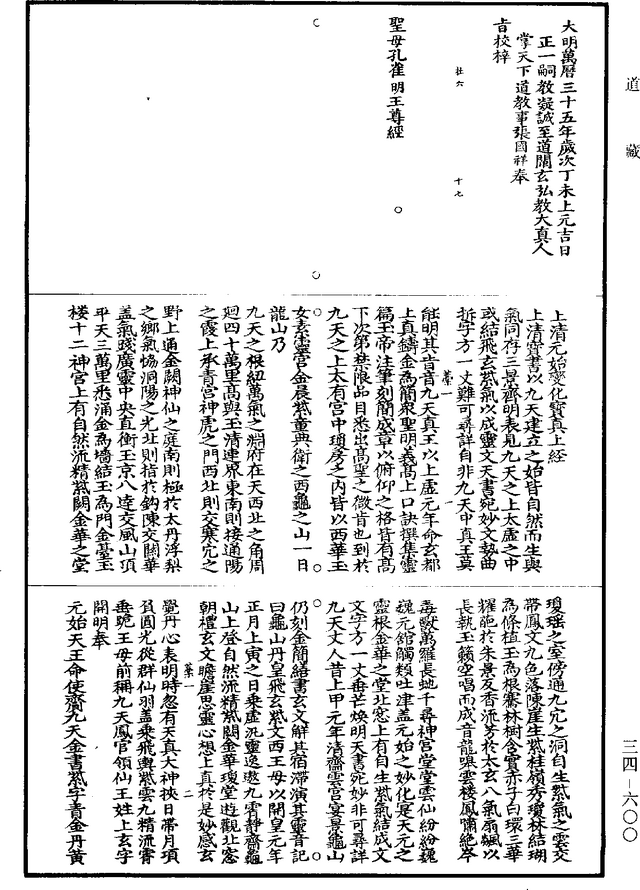 道藏
大明萬曆三十五年歲次丁未上元吉日
正一嗣教凝誠至道闡玄弘教大真人
掌天下道教事張國祥奉
旨校梓
杜六
十七
聖母孔雀明王尊經
上清元始變化寶真上經
上清寶書以九天建立之始皆自然而生與
氣同存三景齊明表見九天之上太虛之中
或結飛玄紫氣以成靈文天書宛妙文勢曲
折字方一丈難可尋詳自非九天中真王莫
能明其旨音九天真王以上虛元年命玄都
上真鑄金為簡眾聖明義高上口訣撰集靈
篇玉帝注筆刻簡盛章以俯仰之格皆有高
下次第禁限品目悉出高聖之微旨也到於
九天之上太有宮中瓊房之內皆以西華玉
女素靈宮金晨紫童典衛之西龜之山一曰
龍山乃
九天之根紐萬氣之淵府在天西北之角周
迴四十萬里高與玉清連界東南則接通陽
之霞上承青宮神虎之門西北則交寒穴之
野上通金闕神仙之庭南則極於太丹浮梨
之鄉氣協洞陽之光北則指於鈎陳交關華
蓋氣踐廣靈中央直衝玉京八達交風山頂
平天三萬里悉涌金為墻結玉為門金臺玉
樓十二神宮上有自然流精紫闕金華之堂
瓊瑶之室傍通九穴之洞自生紫氣之雲交
帶鳳文九色落陳崖生紫桂嶺秀瓊林結瑚
為條植玉為根騫林樹含實赤子白環三華
耀葩於朱景反香流芳於太玄八氣扇颻以
長執玉籟空唱而成音龍嘷雲樓鳳嘯絶岑
毒獸萬雛長虵千尋神宮堂堂雲仙紛紛巍
巍元舘觸類吐津蓋元始之妙化寔天元之
靈根金華之堂北窓上有自生紫氣結成文
文字方一丈垂芒煥明天書宛妙非可尋詳
九天丈人昔上甲元年清齋雲宮宴景龜山
仍刻金簡結書玄文解其宿滯演其靈音記
曰龜山丹皇飛玄紫文西王母以開皇元年
正月上寅之日乘虛汎靈逸遨九雩靜齋龜
山上登自然流精紫闕金華瓊堂遊觀北窓
朝禮玄文瞻崖思靈心想上真於是妙感玄
覺丹心表明時忽有天真大神挾日帶月項
負圓光從群仙羽蓋乘飛輿紫雲九精流霄
垂軿王母前稱九天鳳官領仙王姓上玄字
開明奉
元始天王命使齎九天金書紫字青金丹黃
三四—六〇〇